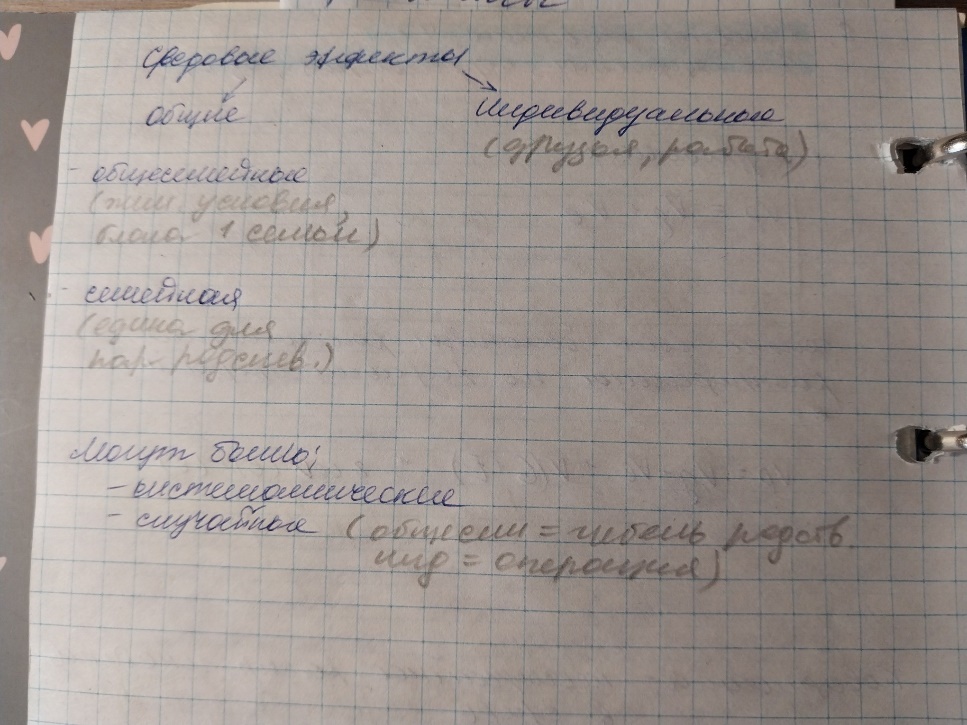 Средовые эффекты
общие
Индивидуальные
(друзья, работа)
- общесемейные
(жил условия,
блага 1 семьи)
- семейная
(едина для
пар родств.)
Могут быть:
- систематические
- случайные (общесем = гибель родств.
инд = операция)